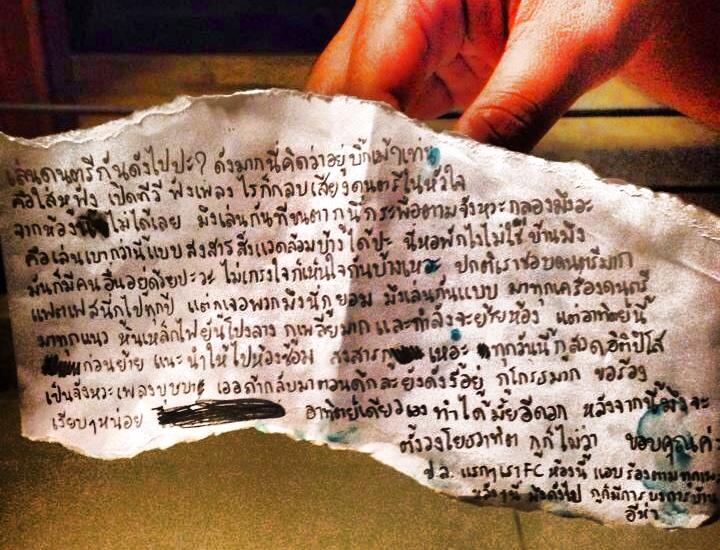 เล่นดนตรีกันดังไปปะ? ดังมากนี่คิดว่าอยู่บิ๊กเม้าเท่น
คือใส่หูฟัง เปิดทีวี ฟังเพลง ไรก็กลบเสียงดนตรีในหัวใจ
จากห้อง ไม่ได้เลย มึงเล่นกันทีขนตากูนี่กระพือตามจังหวะกลองมึงอะ
คือเล่นเบากว่านี้แบบ สงสารสิ่งแวดล้อมบ้าง ได้ปะ นี่หอพักไงไม่ใช่บ้านมึง
มันก็มีคนอื่นอยู่ด้วยปะวะ ไม่เกรงใจก็เห็นใจกันบ้างเหอะ ปกติเราชอบดนตรีมาก
แฟตเฟสนี่กูไปทุกปี แต่กูเจอพวกมึงนี่กูยอม มึงเล่นกันแบบ มาทุกเครื่องดนตรี
มาทุกแนว หินเหล็กไฟยันโปงลาง กูเพลียมาก และกำลังจะย้ายห้อง แต่อาทิตย์นี้
ก่อนย้าย แนะนำให้ไปห้องซ้อม สงสารกู เหอะ ทุกวันนี้กูสวดอิติปิโส
เป็นจังหวะเพลงบุษบาละ เออถ้ากลับมาตอนดึกละยังดังงี้อยู่ กูโกรธมาก ขอร้อง
เงียบๆหน่อย อาทิตย์เดียวเอง ทำได้มั้ยอีดอก หลังจากนี้มึงจะ
ตั้งวงโยธวาทิต กูก็ไม่ว่า ขอบคุณค่
ป.ล. แรกๆเรา FC ห้องนี้ แอบร้องตามทุกเพ
หลังๆนี่ มึงดังไป กูก็มีการบงการบ้าน
อีห่า